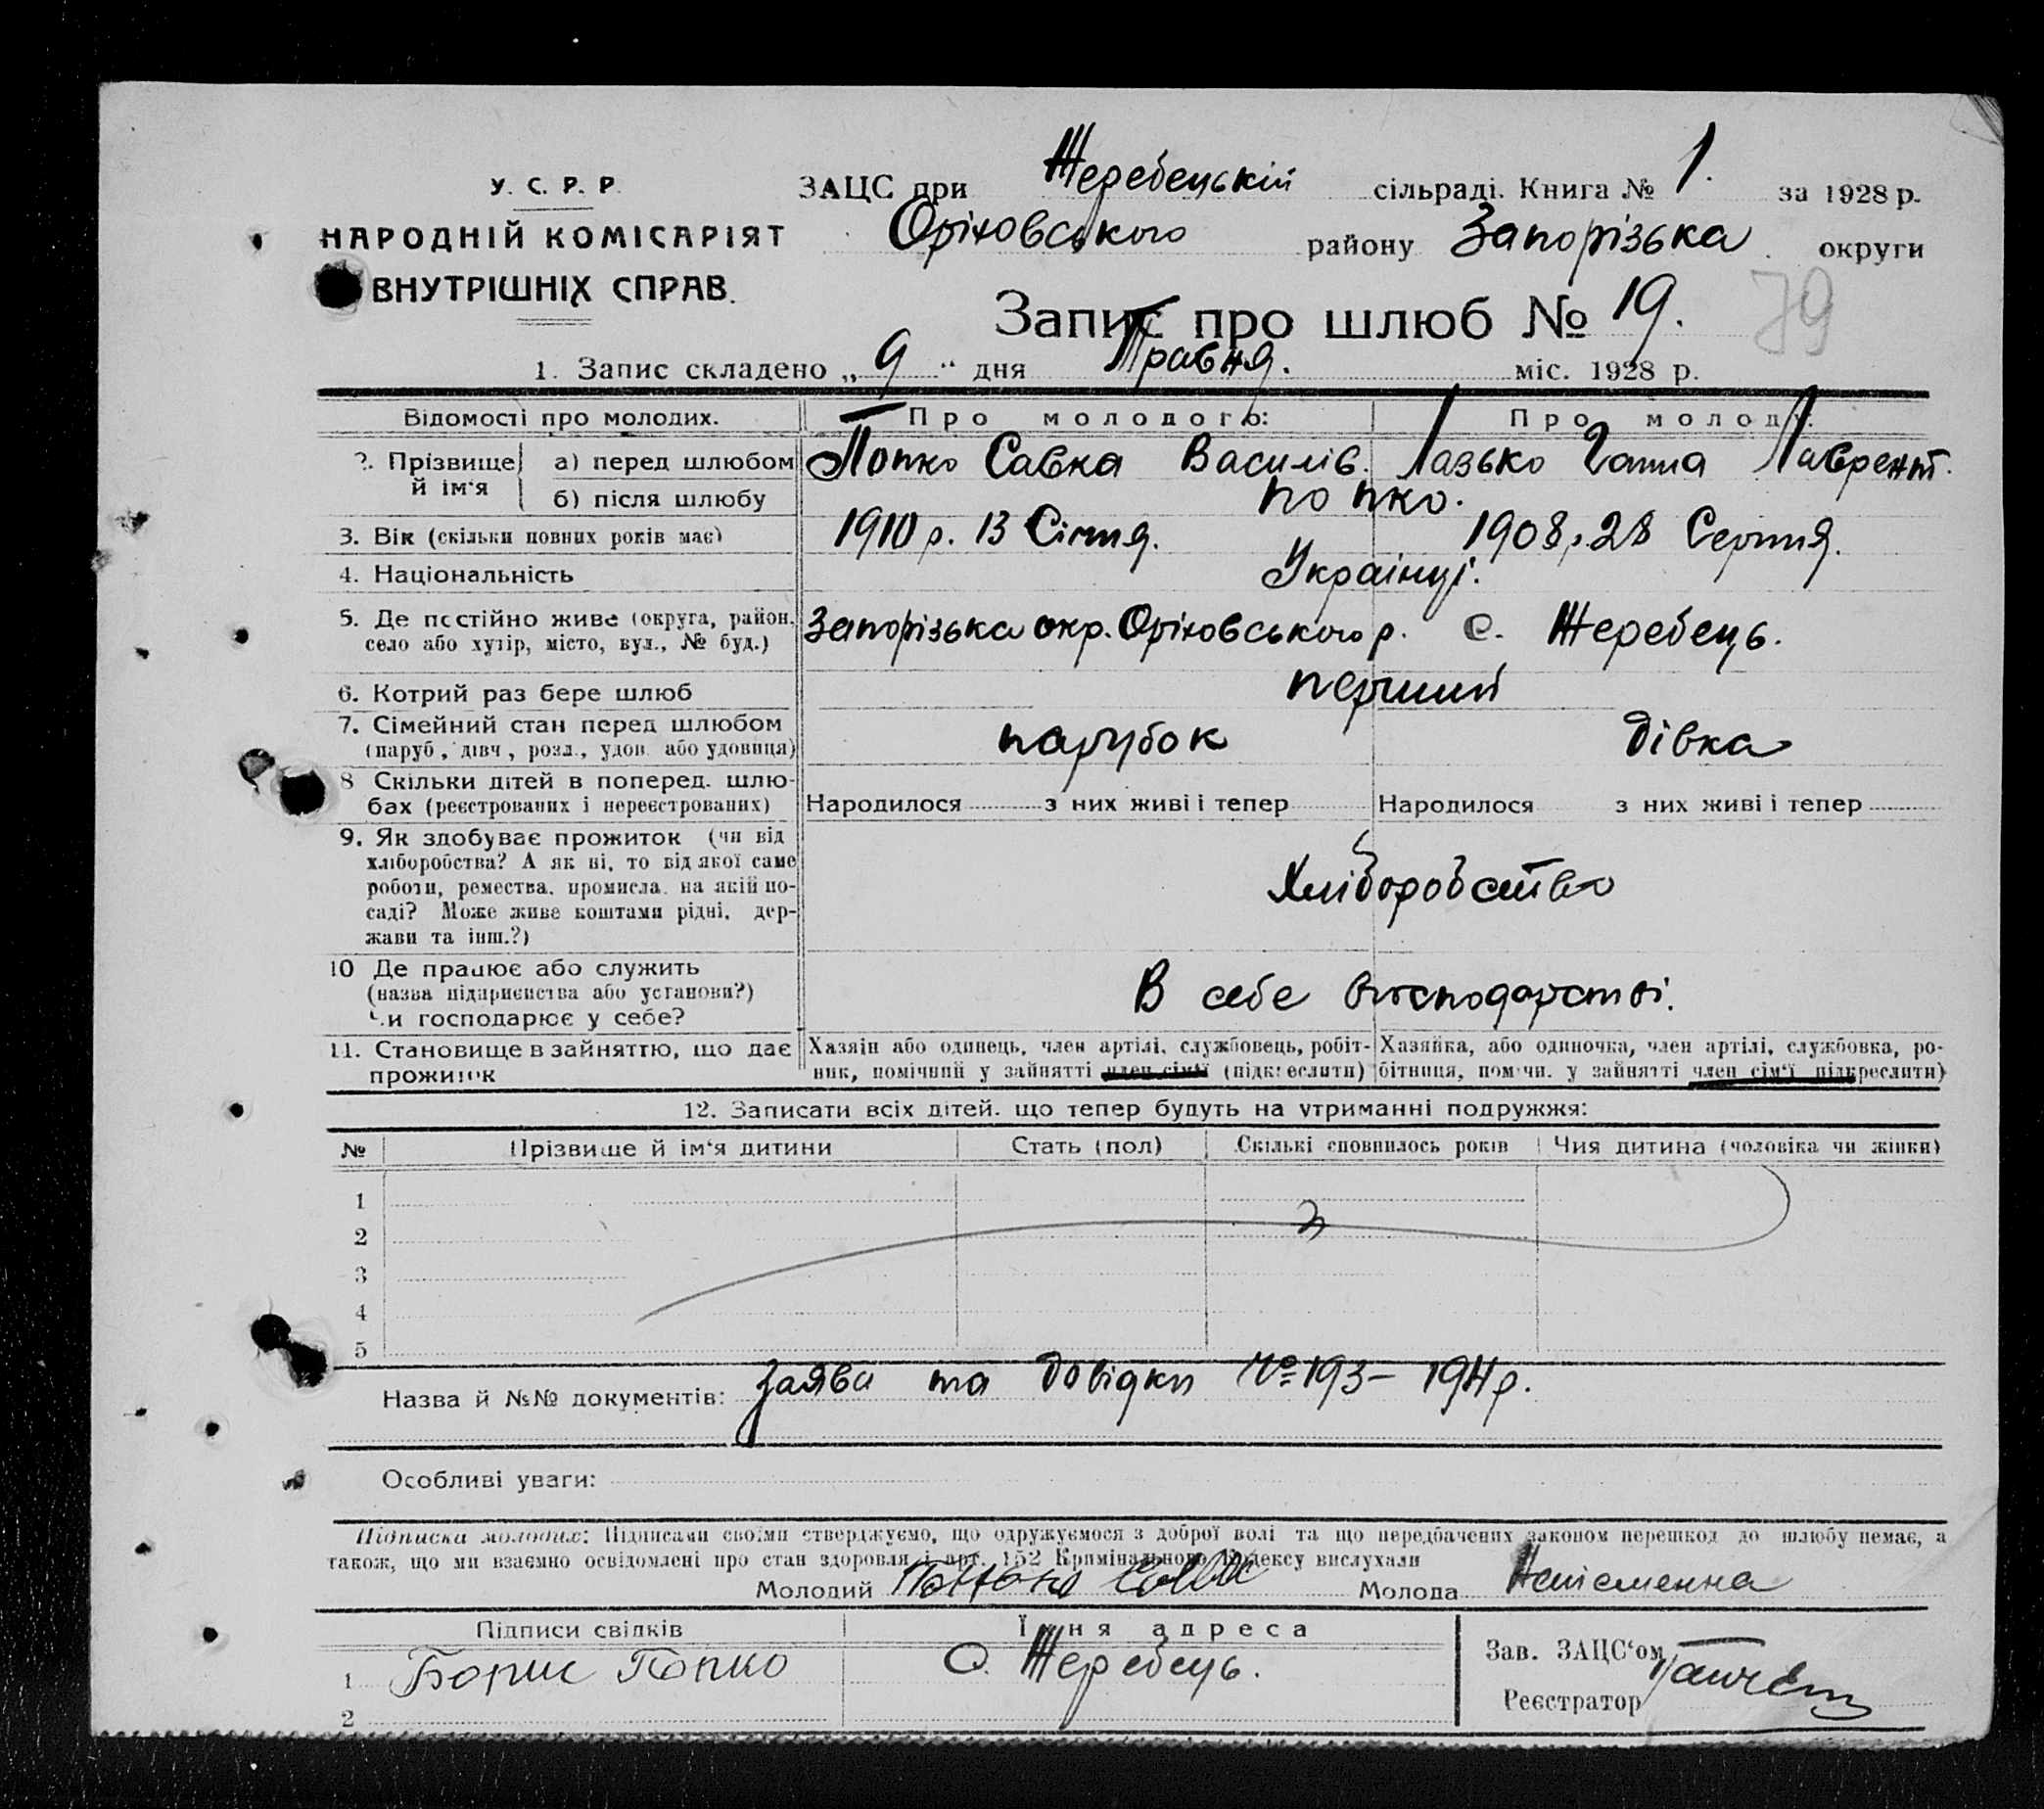 У. С. Р. Р.
НАРОДНІЙ КОМІСАРІЯТ
ВНУТРІШНІХ СПРАВ.
ЗАЦС при Жеребецькій сільраді. Книга № 1. за 1928 р.
Оріховського району Запорізька округи
Запис про шлюб № 19.
79
1. Запис складено „ 9 “ дня Травня. міс. 1928 р.
Відомості про молодих. Про молодого: Про молоду:
2. Прізвище й ім‘я
а) перед шлюбом Попко Савка Василів. Лазько Ганна Лаврент.
б) після шлюбу Попко.
3. Вік (скільки повних років має) 1910 р. 13 Січня. 1908 р. 28 Серпня.
4. Національність Українці.
5. Де постійно живе (округа, район, село або хутір, місто, вул., № буд.) Запорізька окр. Оріховського р. с. Жеребець.
6. Котрий раз бере шлюб перший
7. Сімейний стан перед шлюбом (паруб., дівч., розл., удов. або удовиця) парубок дівка
8 Скільки дітей в поперед. шлюбах (реєстрованих і нереєстрованих) Народилося з них живі і тепер Народилося з них живі і тепер
9. Як здобуває прожиток (чи від
хліборобства? А як ні, то від якої саме
роботи, ремества, промисла, на якій по-
саді? Може живе коштами рідні, дер-
жави та інш.?)
Хліборобство
10 Де працює або служить
(назва підприємства або установи?)
Чи господарює у себе?
В себе в господарстві.
11. Становище в зайняттю, що дає
прожиток
Хазяїн або одинець, член артілі, службовець, робіт-
ник, помічний у зайнятті член сім‘ї (підкреслити)
Хазяйка, або одиночка, член артілі, службовка, ро-
бітниця, помічн. у зайнятті член сім‘ї підкреслити)
12. Записати всіх дітей, що тепер будуть на утриманні подружжя:
№ Прізвище й ім‘я дитини Стать (пол) Скількі сповнилось років Чия дитина (чоловіка чи жінки)
1
2
3
4
5
Назва й №№ документів: Заява та довідки № 193 – 194 р.
Особливі уваги:
Підписка молодих: Підписами своїми стверджуємо, що одружуємося з доброї волі та що передбачених законом перешкод до шлюбу немає, а
також, що ми взаємно освідомлені про стан здоровля і арт. 152 Кримінального Кодексу вислухали
Молодий Молода Неписменна
Підписи свідків Їхня адреса
1 Борис Попко С. Жеребець.
2
Зав. ЗАЦС‘ом
Реєстратор